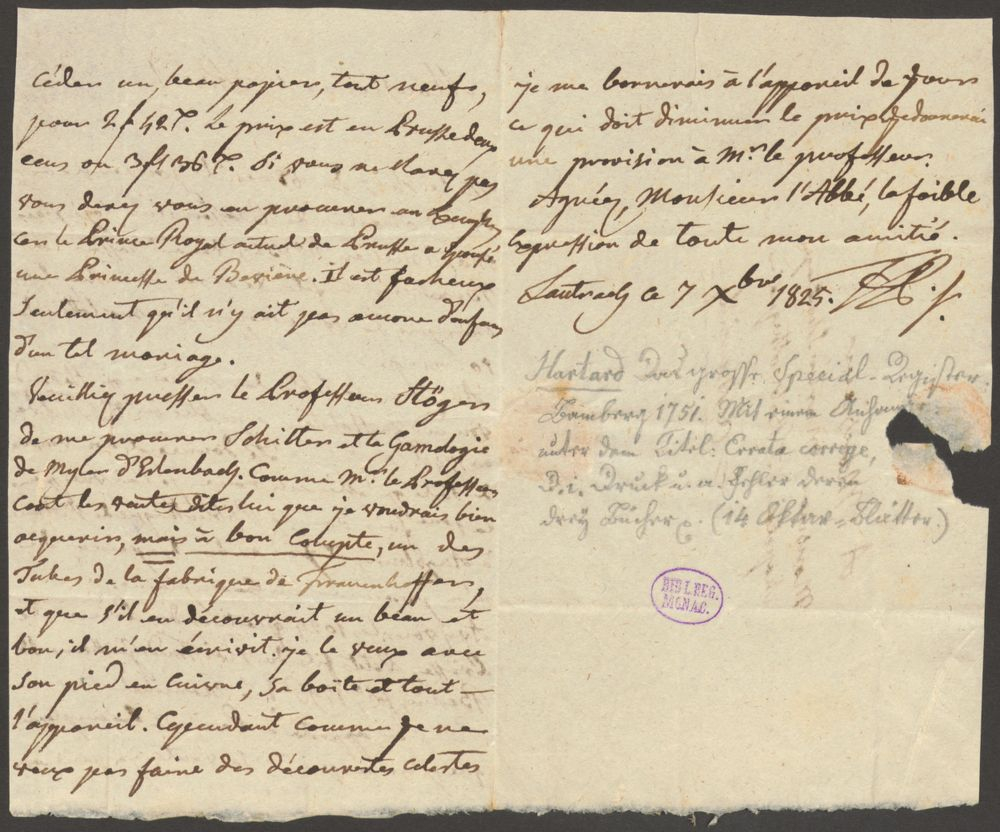 céder un, beau papier, tout neufs,
pour 2 f 42 Z. Le prix est en Prusse deux
ecus ou 3 fl 36 Z. Si vous ne l'avez pas
vous devez vous en procurer un
car le Prince Royal actuel de Prusse a épousé
une Princesse de Baviere. Il est facheux
seulement qu'il n'y ait pas encore d'enfans
d'un tel mariage.
Veuillez presser le Professeur Stögen
de me procurer Schilter et la Gamologie
de Myler d'Edenbach. Comme Mr. le Professeur
court les ventes dites lui que je voudrais bien
acquerir, mais à bon Compte, un des
Tubes de la fabrique de Frauenhoffer,
et que s'il en découvrait un beau et
bon, il m'en écrivit. je le veux avec
son pied en Cuivre, sa boîte et tout
l'appareil. Cependant comme je ne
veux pas faire des découvertes celestes
je me bornerais à l'appareil de jour
ce qui doit diminuer le prix. Je donnerai
une provision à Mr. le professeur.
Agréez, Monsieur l'Abbé, la foible
expression de toute mon amitié.
Lautrach ce 7 Xbre 1825.
Hartard Das grosse Special-Register.
Bamberg 1751. Mit einem Anhang
unter dem Titel: Errata corrige,
D. i. Druck u. a. Fehler deren
drey Bücher. (14 Oktav-Blätter)
BIBL. REG.
MONAC.